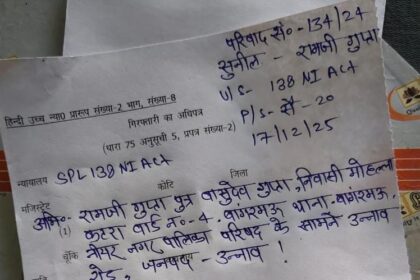 परिवाद सं०- 134/24
सुनील - रामजी गुप्ता
U/S- 138 NI ACT
P/S- सै- 20
17/12/25
हिन्दी उच्च न्या0 प्रारूप संख्या-2 भाग, संख्या-8
गिरफ्तारी का अधिपत्र
(धारा 75 अनुसूची 5, प्रपत्र संख्या-2)
न्यायालय SPL 138 NI ACT
कोटि जिला
मजिस्ट्रेट
अभि०- रामजी गुप्ता पुत्र वासुदेव गुप्ता, निवासी मोहल्ला
(1) कटरा वार्ड नं०-4, बांगरमऊ थाना- बांगरमऊ,
चूंकि नियर नगर पालिका परिषद के सामने उन्नाव
रोड, जनपद- उन्नाव !